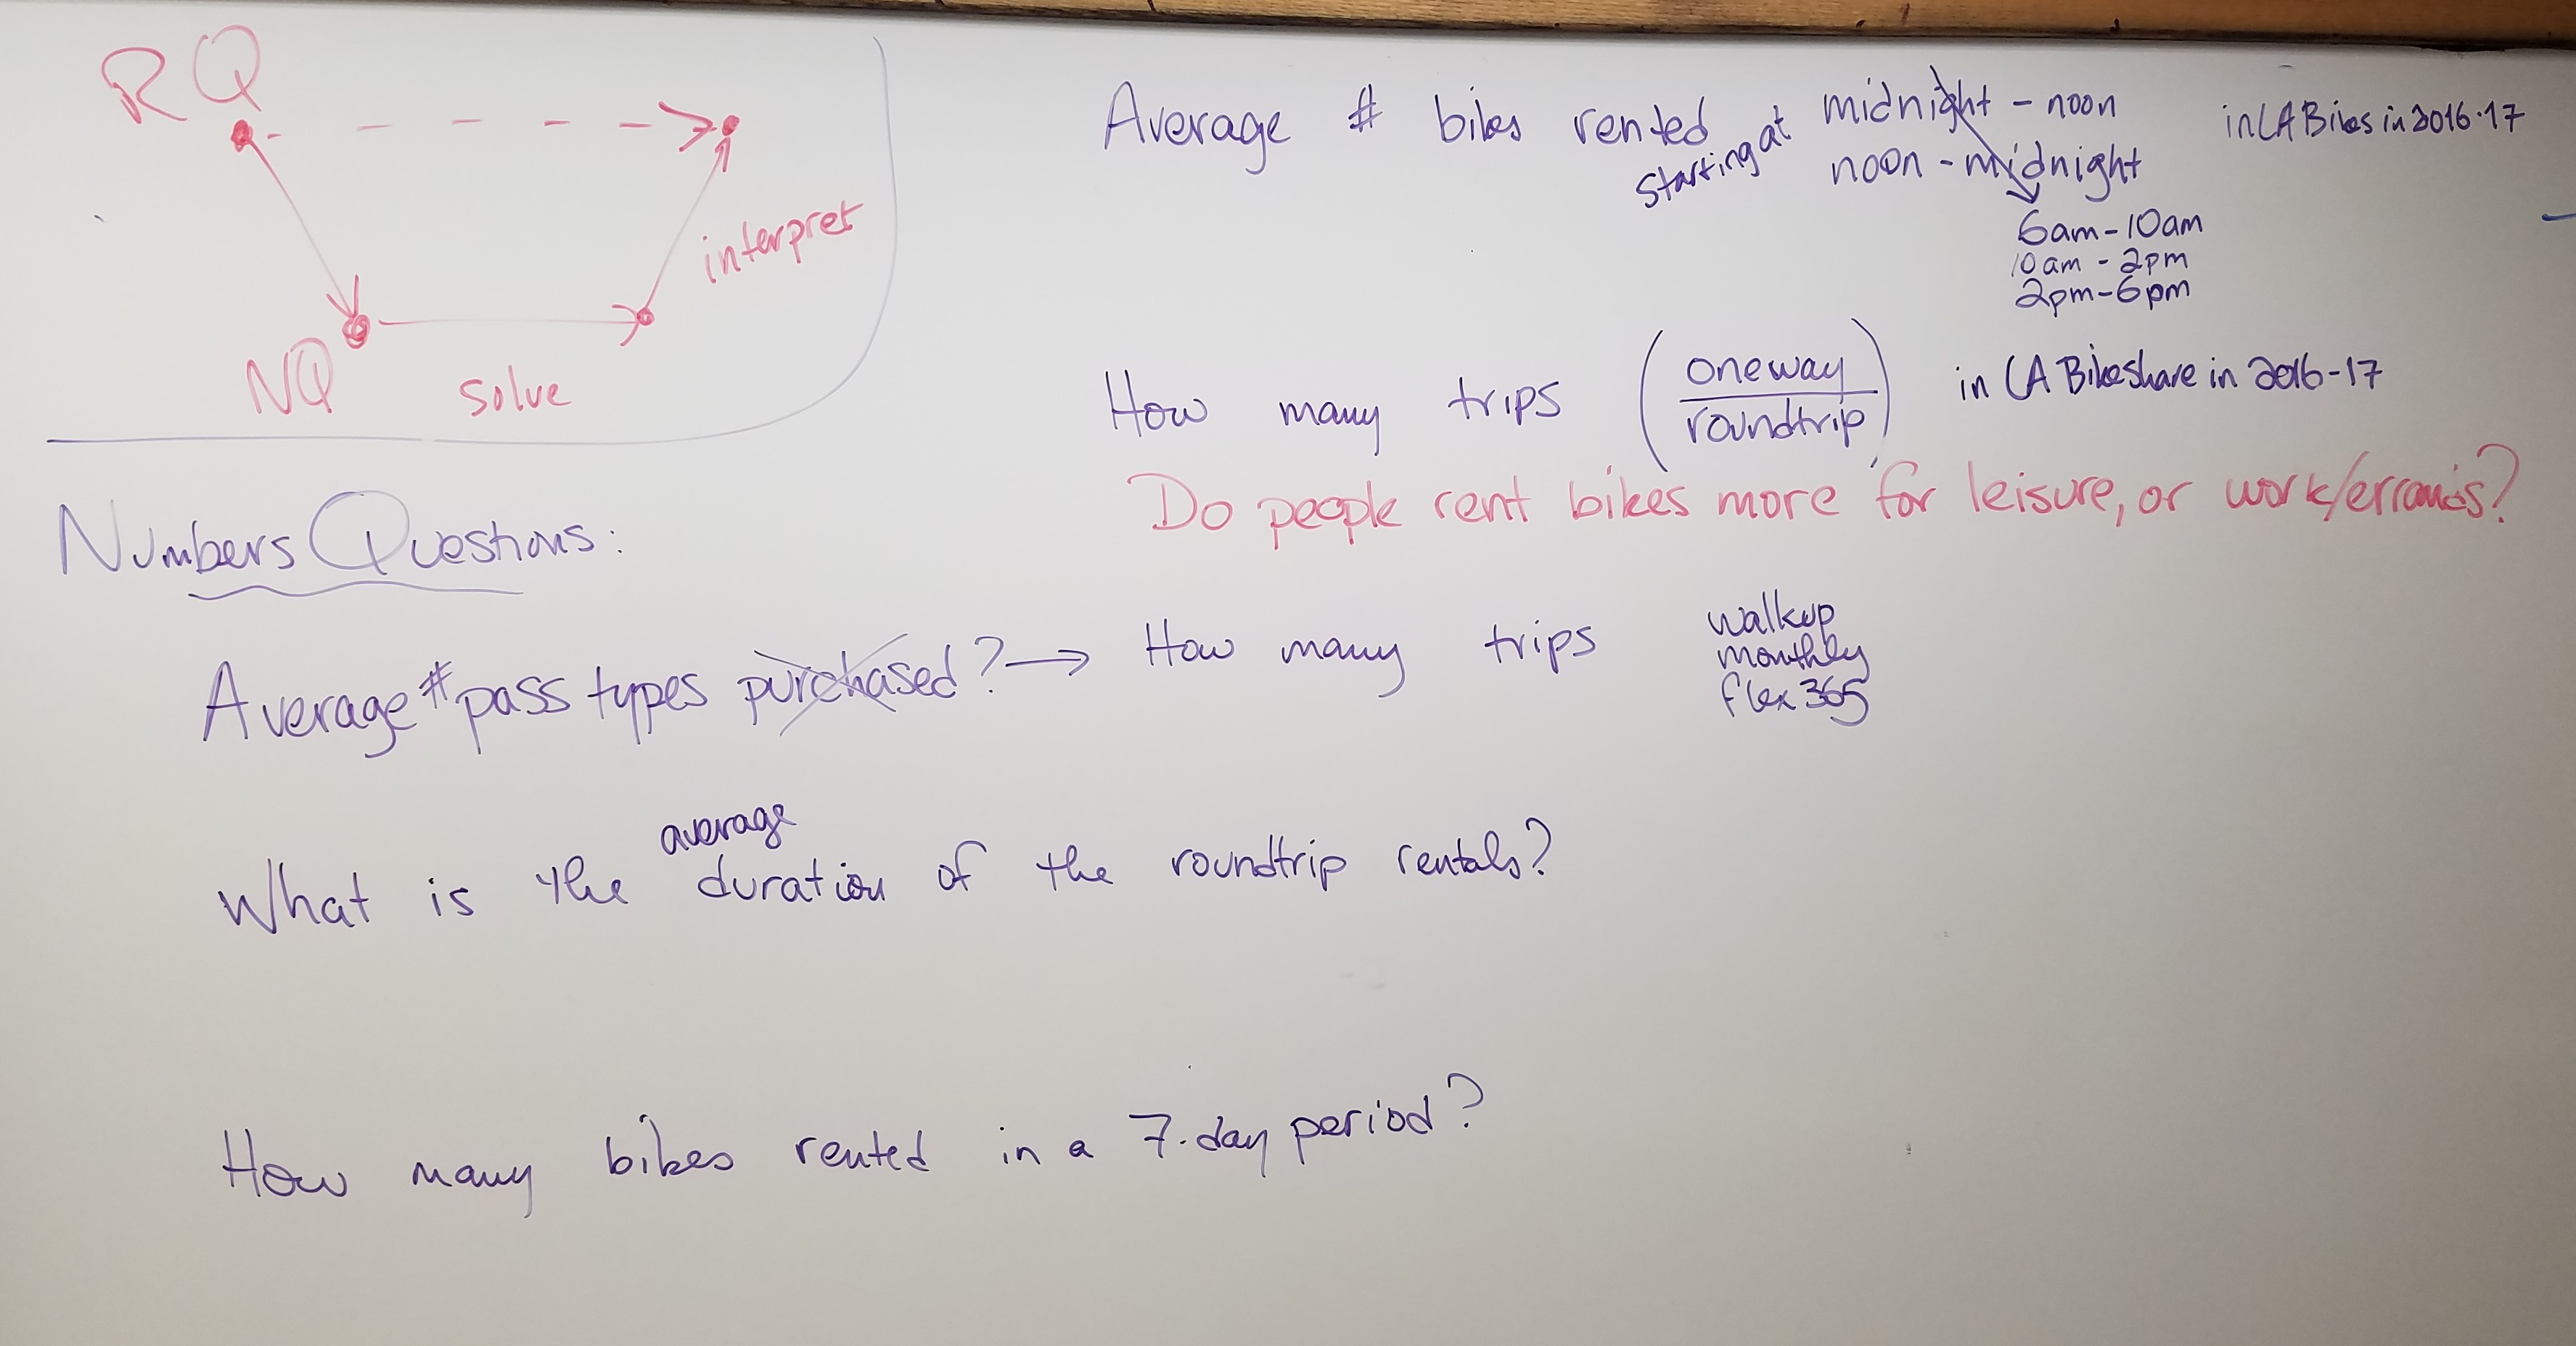 RQ
interpret
NQ
solve
Numbers Questions:
Average # pass types purchased? → How many trips
walkup
monthly
flex 365
What is the average duration of the roundtrip rentals?
How many bikes rented in a 7-day period?
Average # bikes rented starting at midnight - noon in LA Bikes in 2016-17
noon - midnight
6am - 10am
10am - 2pm
2pm - 6pm
How many trips (oneway / roundtrip) in LA Bikeshare in 2016-17
Do people rent bikes more for leisure, or work/errands?